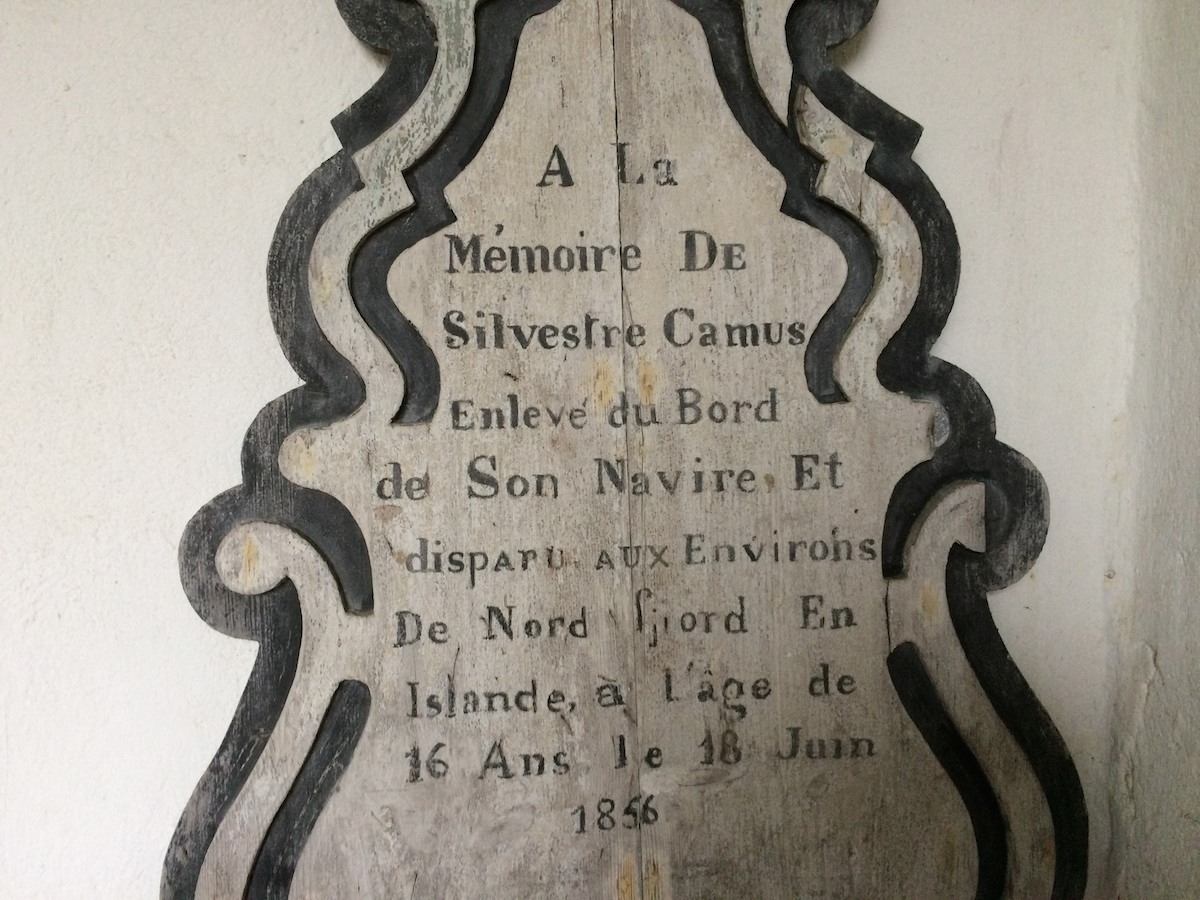 A La
Mémoire De
Silvestre Camus
Enlevé du Bord
de Son Navire, Et
disparu aux Environs
De Nord fjord En
Islande, à l'âge de
16 Ans le 18 Juin
1856